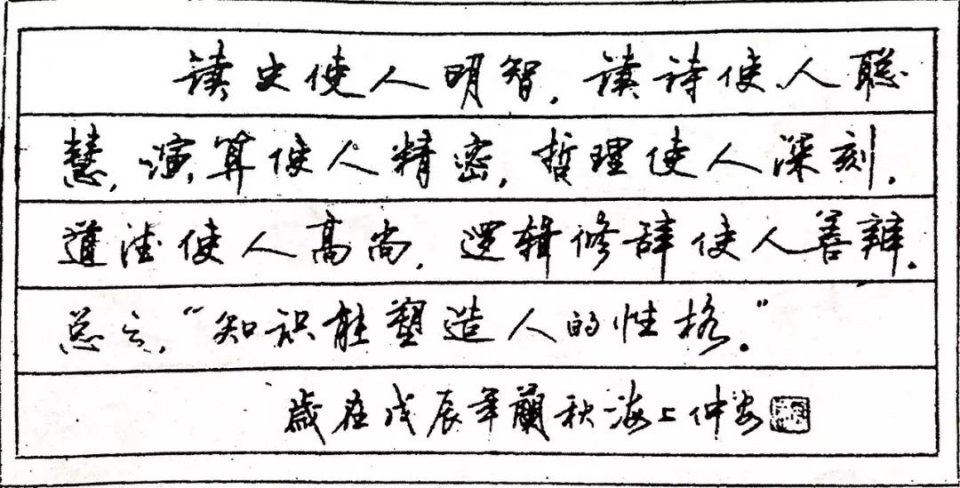 读史使人明智,读诗使人聪
慧,演算使人精密,哲理使人深刻,
道德使人高尚,逻辑修辞使人善辩.
总之,“知识能塑造人的性格.”
歲在戊辰年蘭秋海上仲安